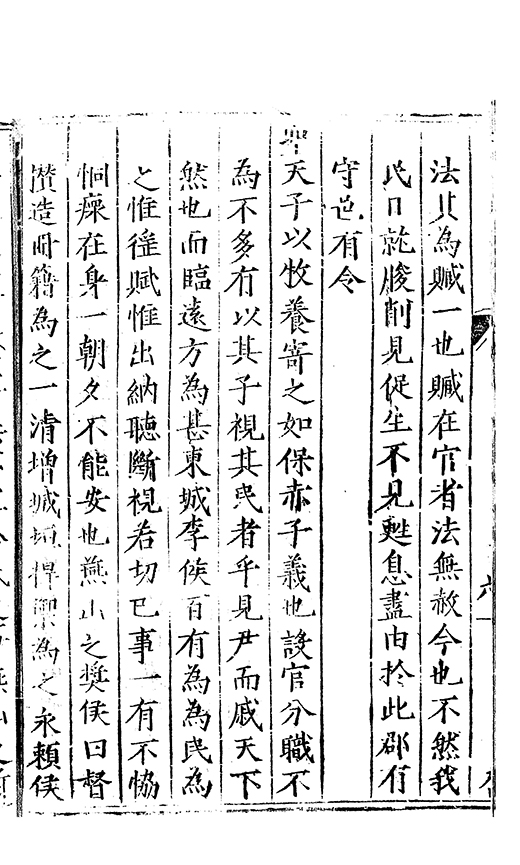 法其為贓一也贓在官者法無赦今也不然我
民日就朘削見促生不見甦息盡由於此郡有
守邑有令
聖天子以牧養寄之如保赤子義也設官分職不
為不多有以其子視其民者乎見尹而戚天下
然也而臨遠方為甚東城李侯百有為為民為
之惟徭賦惟出納聽斷視若切己事一有不恊
恫瘝在身一朝夕不能安也燕山之奬侯曰督
攢造冊籍為之一清增城垣捍禦為之永賴侯